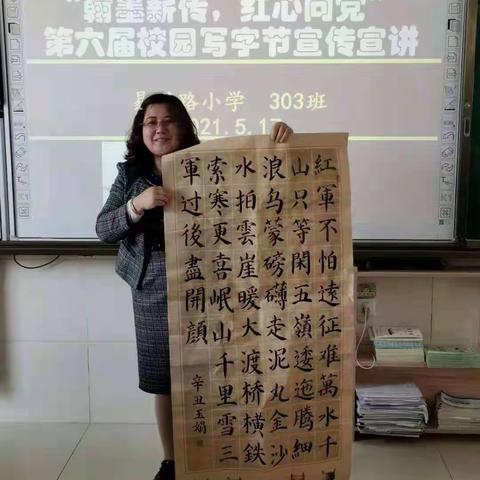 "翰墨薪传，红心向党"
第六届校园写字节宣传宣讲
路小学 303班
2021.5.17
紅軍不怕遠征难萬水千
山只等閑五嶺逶迤腾細
浪乌蒙磅礴走泥丸金沙
水拍雲崖暖大渡桥横鉄
索寒更喜岷山千里雪三
軍过後盡開顔
辛丑玉娟